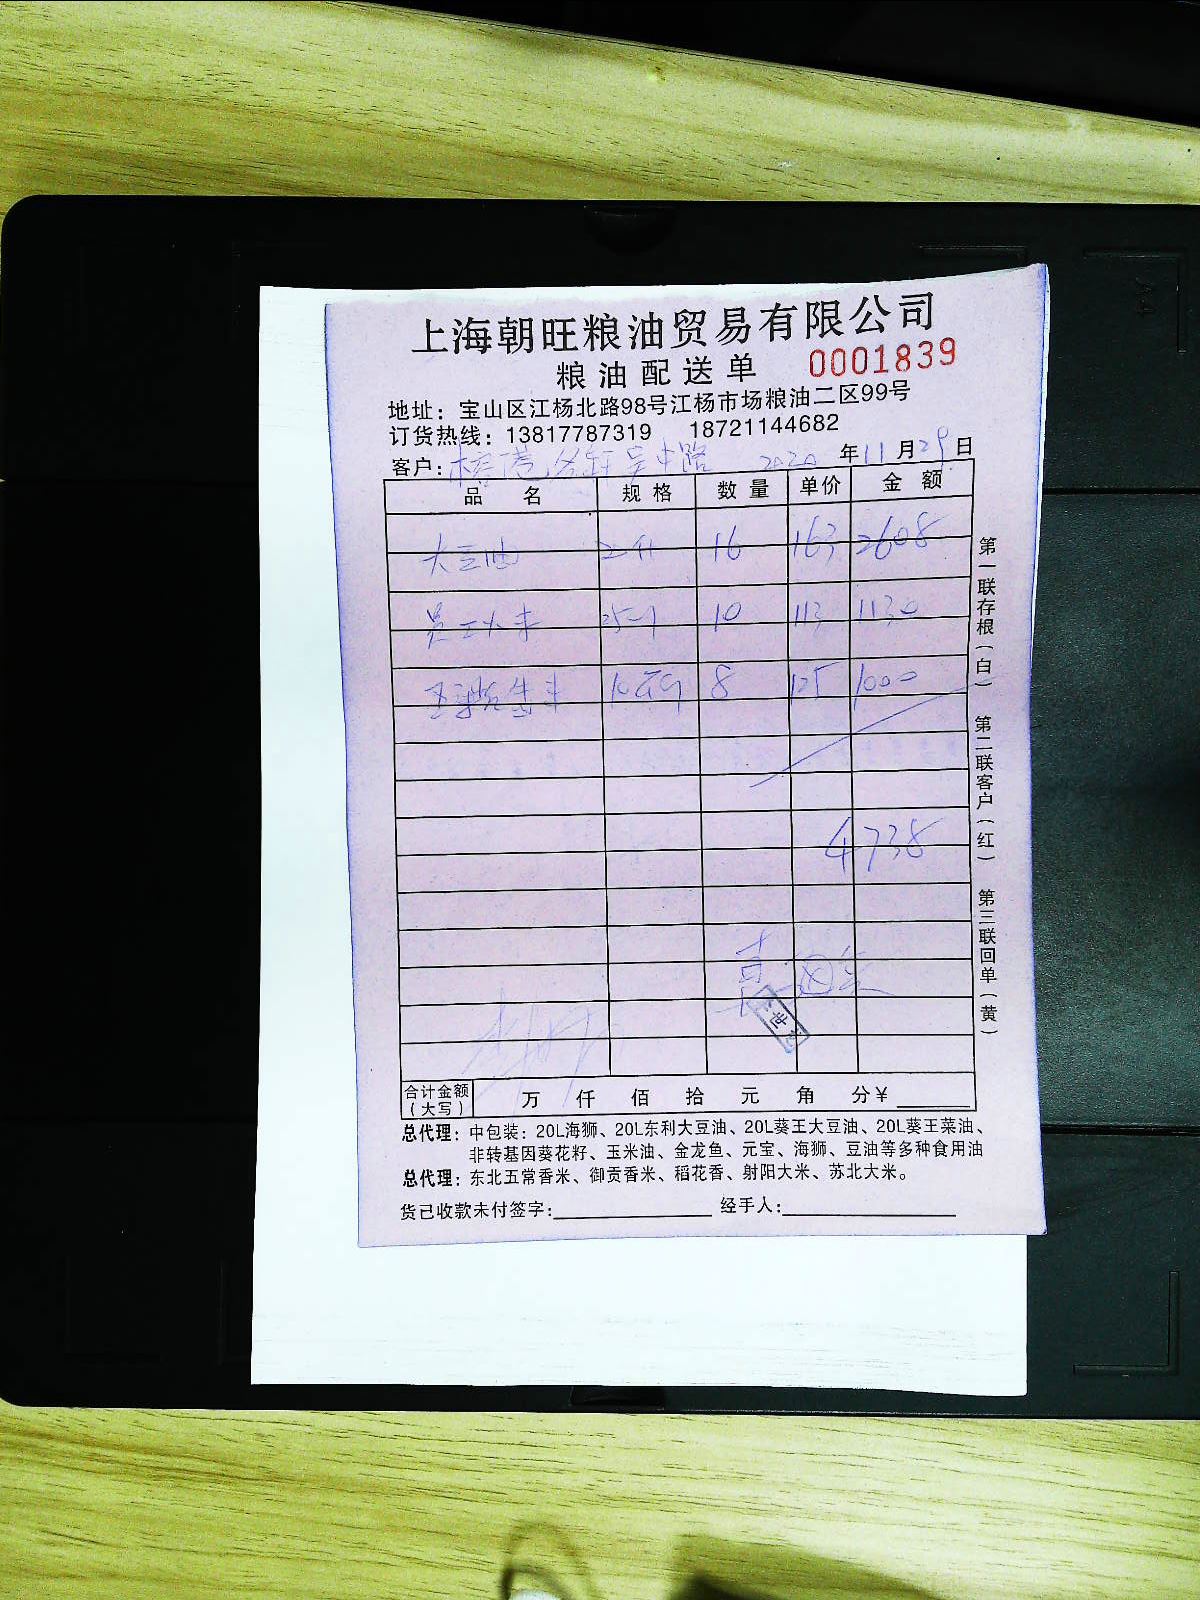 上海朝旺粮油贸易有限公司
粮油配送单 0001839
地址：宝山区江杨北路98号江杨市场粮油二区99号
订货热线：13817787319 18721144682
客户： 吴中路 2020年11月29日
品名 规格 数量 单价 金额
大豆油 16 163 2608
员工大米 10 113 1130
8 125 1000
4738
合计金额（大写） 万 仟 佰 拾 元 角 分￥
总代理：中包装：20L海狮、20L东利大豆油、20L葵王大豆油、20L葵王菜油、
非转基因葵花籽、玉米油、金龙鱼、元宝、海狮、豆油等多种食用油
总代理：东北五常香米、御贡香米、稻花香、射阳大米、苏北大米。
货已收款未付签字： 经手人：
第一联存根（白）
第二联客户（红）
第三联回单（黄）